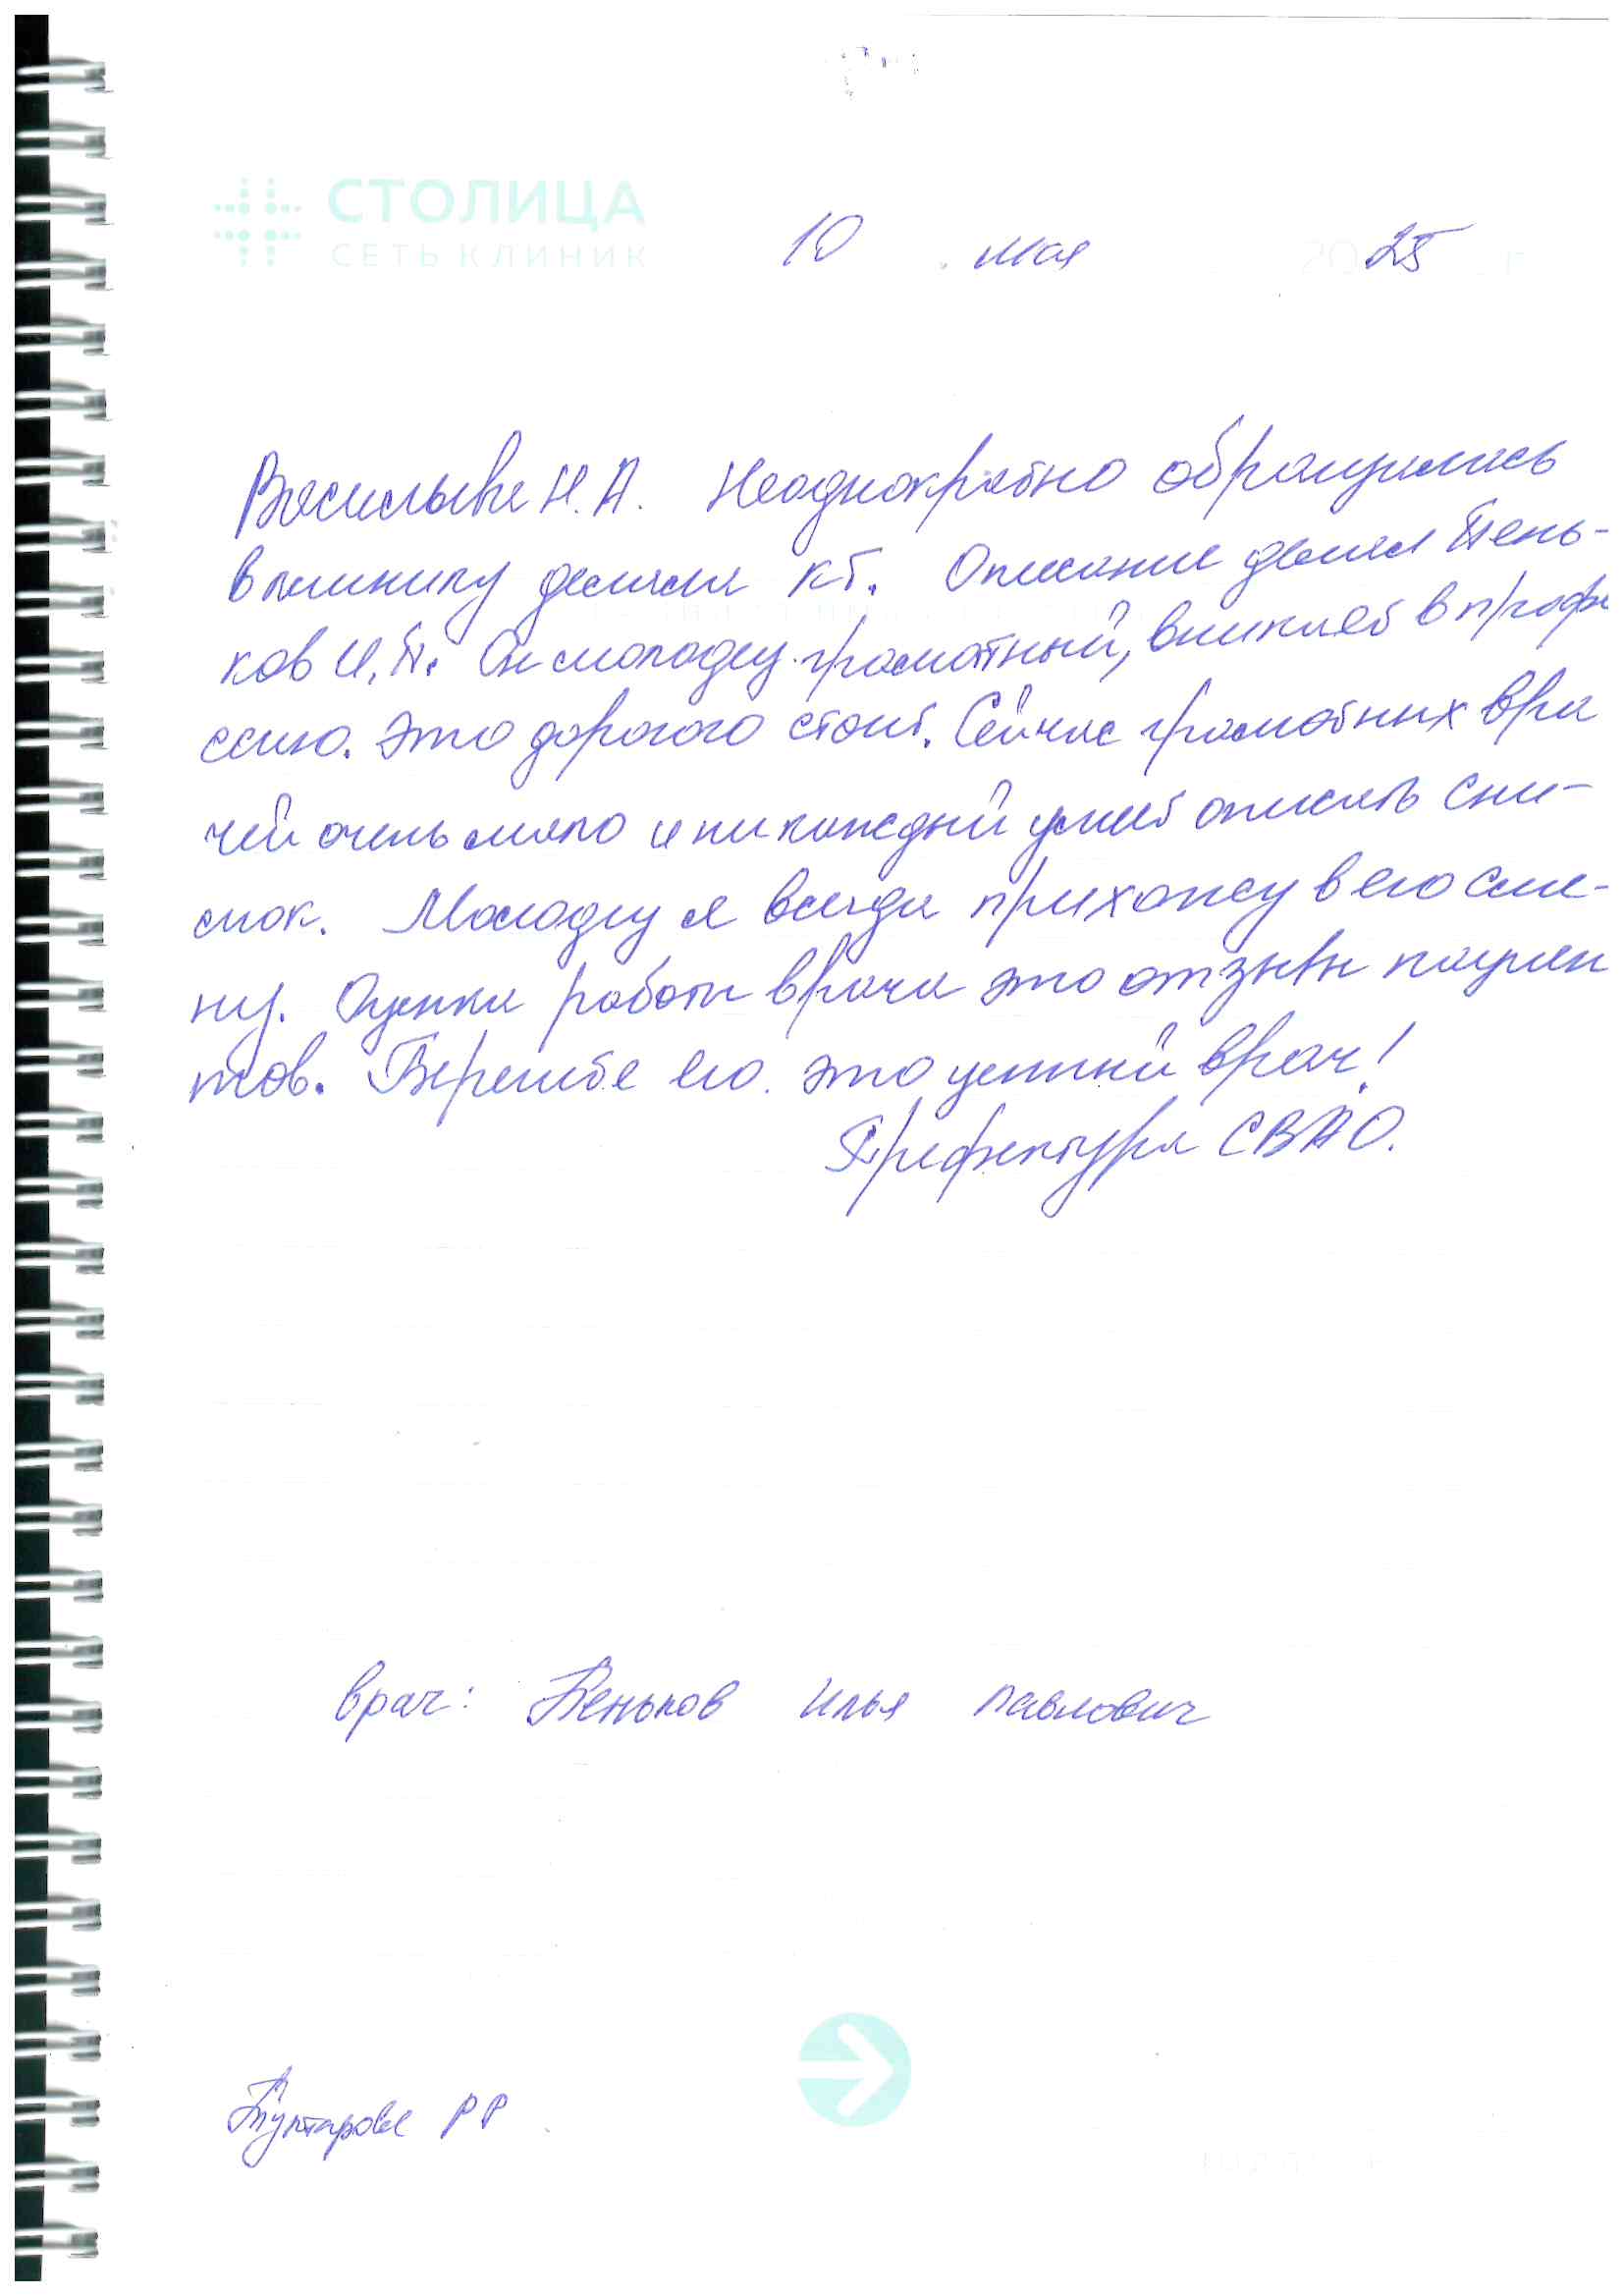 СТОЛИЦА
СЕТЬ КЛИНИК
10 мая 25
Васильева Н.А. Неоднократно обращалась
в клинику делала КТ. Описание делал Пень-
ков И.П. Он молодец грамотный, вникает в профе
ссию. Это дорогого стоит. Сейчас грамотных вра
чей очень мало и не каждый умеет описать сни-
мок. Молодец я всегда прихожу в его сме-
ну. Оценка работы врача это отзывы пациен
тов. Берегите его. это ценный врач!
Префектура СВАО.
врач: Пеньков Илья Павлович
РР